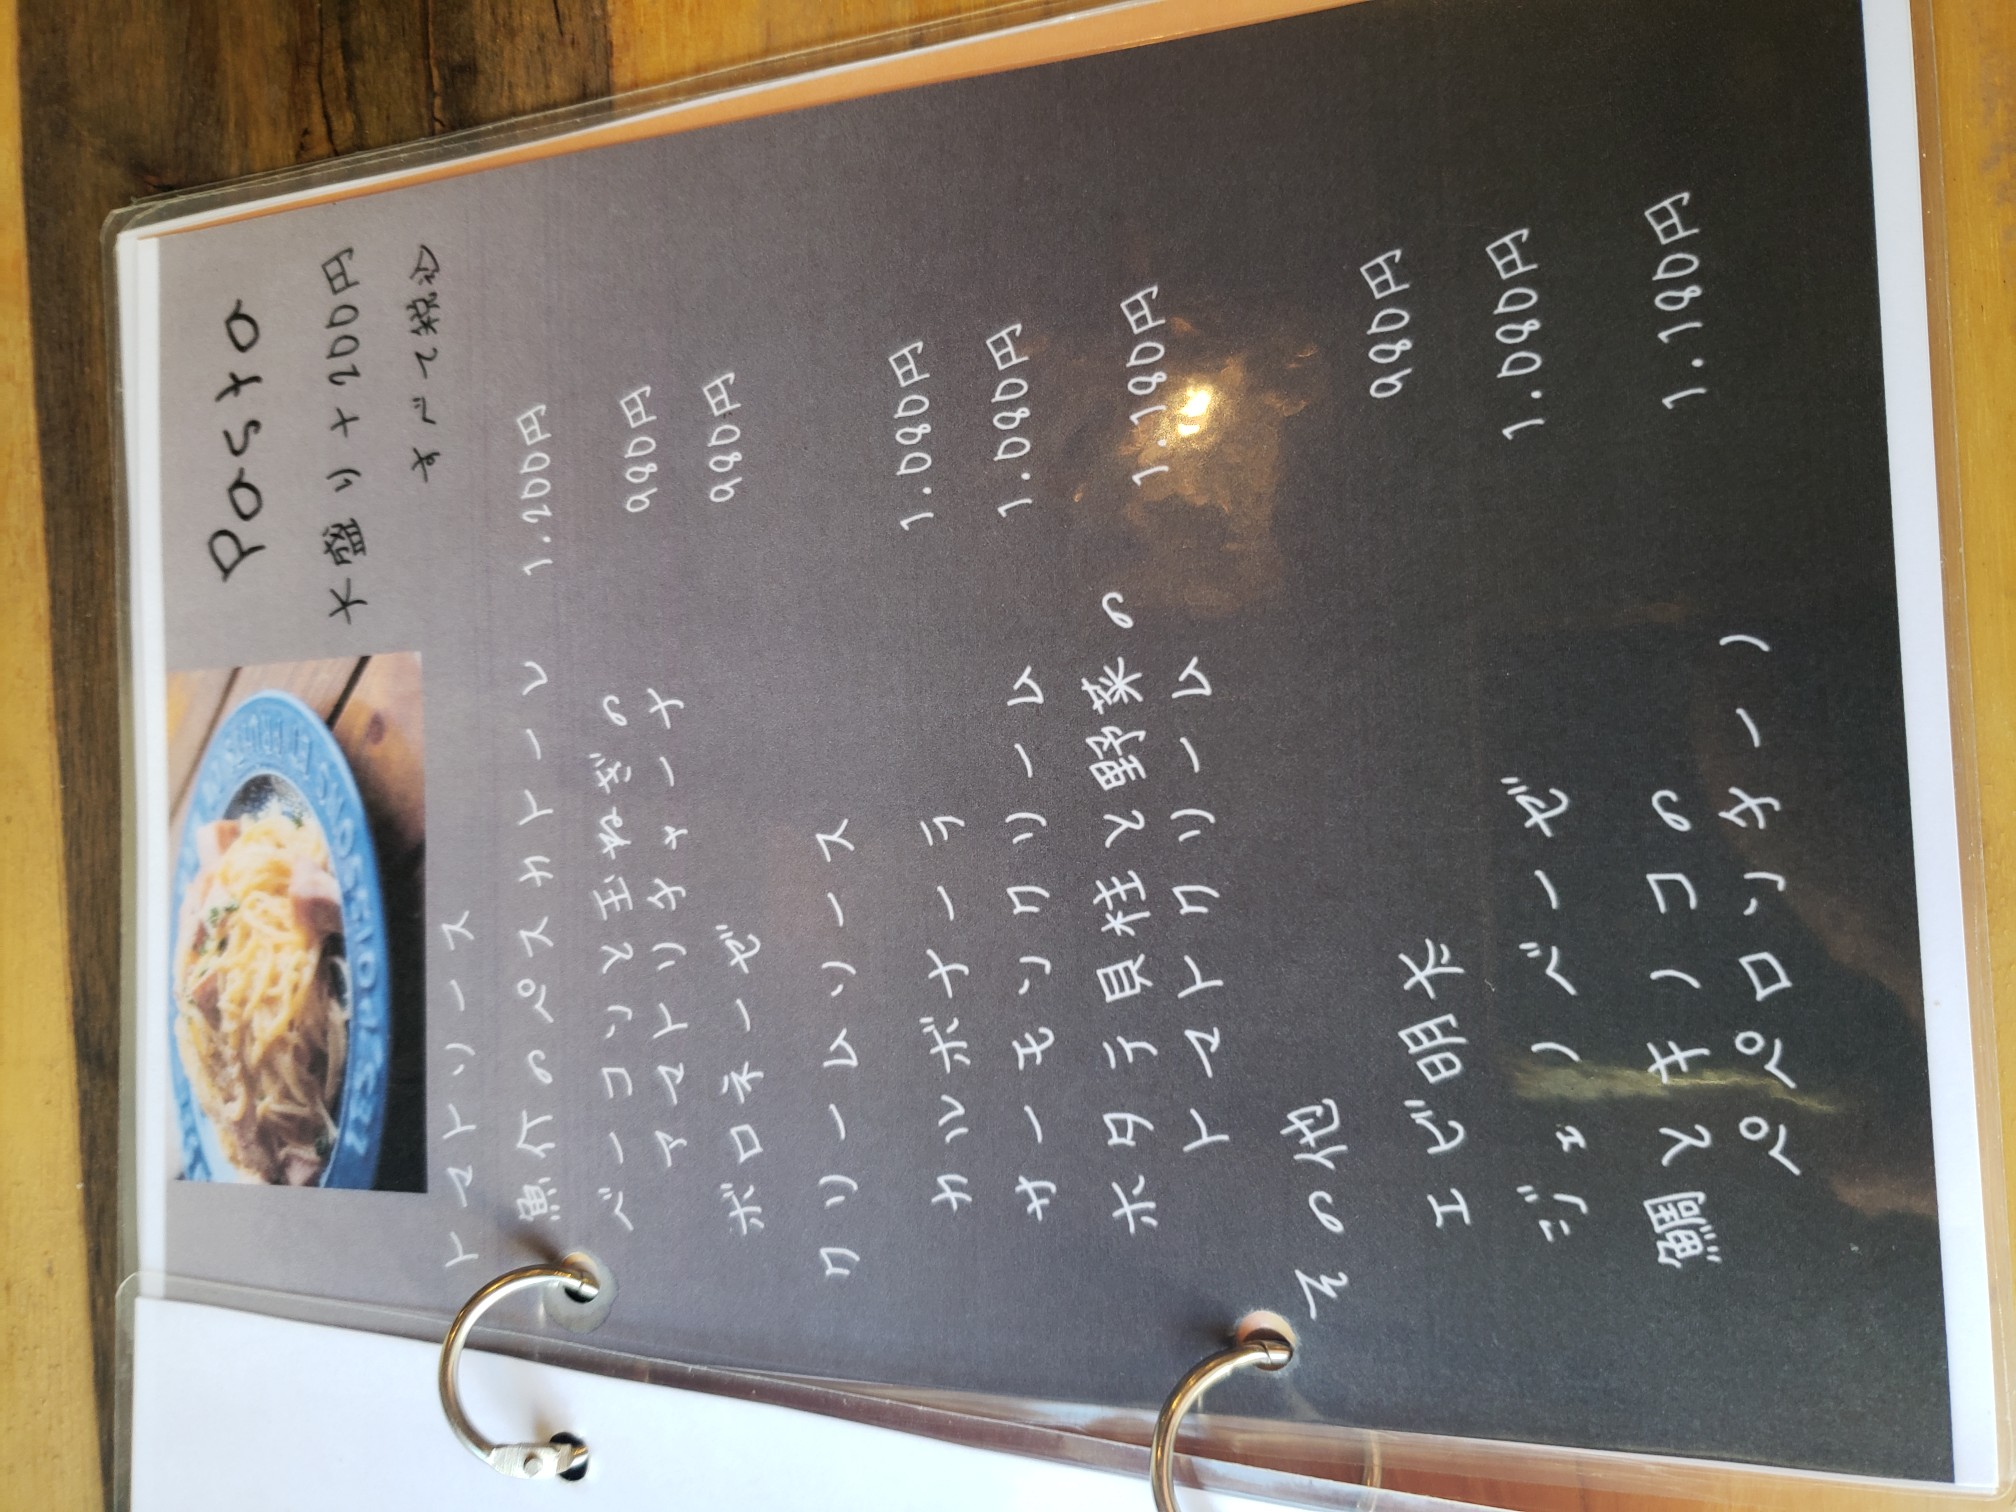 Pasta
大盛り + 200円
すべて税込
トマトソース
魚介のペスカトーレ 1.200円
ベーコンと玉ねぎの
アマトリチャーナ 980円
ボロネーゼ 980円
クリームソース
カルボナーラ 1.080円
サーモンクリーム 1.080円
ホタテ貝柱と野菜の
トマトクリーム 1.180円
その他
エビ明太 980円
ジェノベーゼ 1.080円
鯛とキノコの 1.180円
ペペロンチーノ